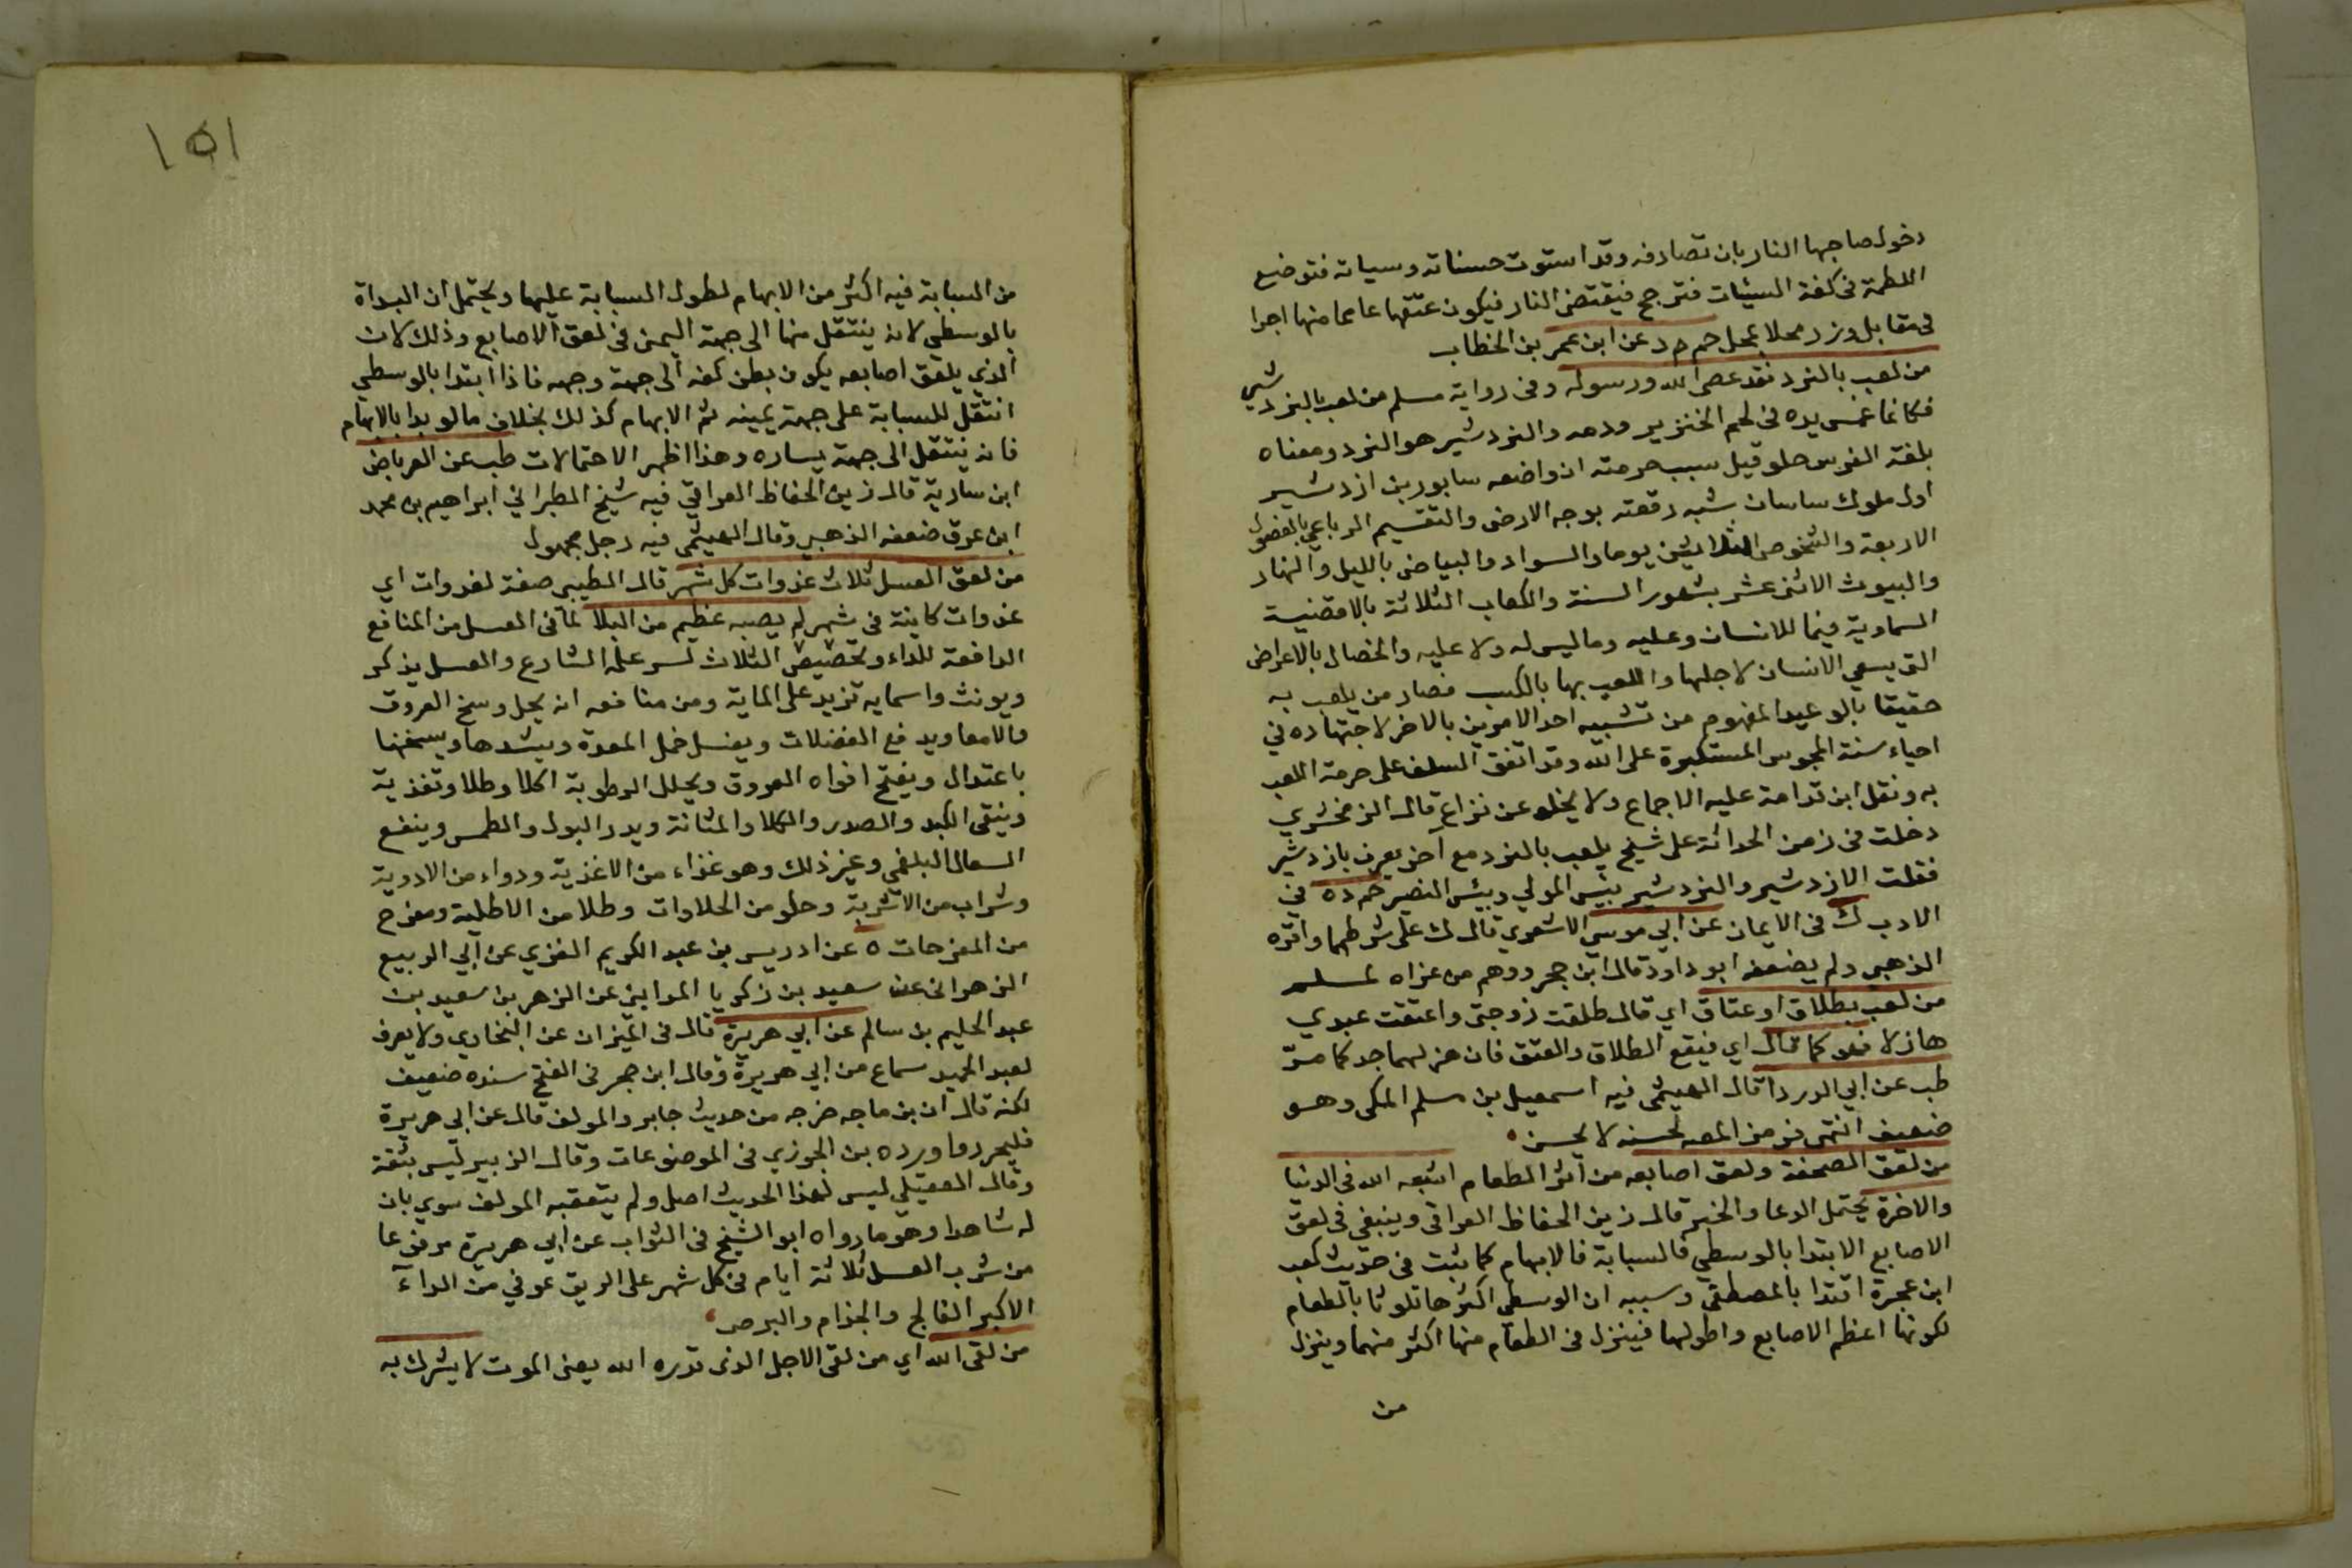 دخول صاحبها النار بان تصادفه وقد استوت حسناته وسياته فتوضع
اللطمة فى كفة السيئات فترجح فيقتضى النار فيكون عتقها عاما منها اجرا
فى مقابل وزر محلا بمحل حم م د عن ابن عمر بن الخطاب
من لعب بالنرد فقد عصى الله ورسوله وفى رواية مسلم من لعب بالنردشير
فكانما غمس يده فى لحم الخنزير ودمه والنردشير هو النرد ومعناه
بلغة الفرس حلو قيل سبب حرمته ان واضعه سابور بن ازدشير
اول ملوك ساسان شبه رقعته بوجه الارض والتقسيم الرباعي بالفصول
الاربعة والشخوص الثلاثين يوما والسواد والبياض بالليل والنهار
والبيوت الاثنى عشر بشهور السنة والكعاب الثلاثة بالاقضية
السماوية فيما للانسان وعليه وما ليس له ولا عليه والخصال بالاعراض
التى يسعى الانسان لاجلها واللعب بها بالكسب فصار من يلعب به
حقيقا بالوعيد المفهوم من تشبيه احد الامرين بالاخر لاجتهاده في
احياء سنة المجوس المستكبرة على الله وقد اتفق السلف على حرمة اللعب
به ونقل ابن قدامة عليه الاجماع ولا يخلو عن نزاع قال الزمخشري
دخلت فى زمن الحداثة على شيخ يلعب بالنرد مع آخر يعرف بازدشير
فقلت الازدشير والنردشير بئس المولى وبئس النصير حم د ه في
الادب ك فى الايمان عن ابي موسى الاشعري قال ك على شرطهما واقره
الذهبي ولم يضعفه ابو داود قال ابن حجر ووهم من عزاه لمسلم
من لعب بطلاق او عتاق اي قال طلقت زوجتى واعتقت عبدي
هازلا فهو كما قال اي فيقع الطلاق والعتق فان هزلهما جد كما مرّ
طب عن ابي الدرداء قال الهيثمي فيه اسمعيل بن مسلم المكي وهو
ضعيف انتهى فرمز المصه لحسنه لا يحسن
من لعق الصحفة ولعق اصابعه من اثر الطعام اشبعه الله فى الدنيا
والاخرة يحتمل الدعا والخبر قال زين الحفاظ العراقي وينبغي فى لعق
الاصابع الابتدا بالوسطى فالسبابة فالابهام كما ثبت فى حديث كعب
ابن عجرة اقتدا بالمصطفى وسببه ان الوسطى اكثرها تلوثا بالطعام
لكونها اعظم الاصابع واطولها فينزل فى الطعام منها اكثر منهما وينزل
من
١٥١
من السبابة فيه اكثر من الابهام لطول السبابة عليها ويحتمل ان البداة
بالوسطى لانه ينتقل منها الى جهة اليمنى فى لعق الاصابع وذلك لان
الذي يلعق اصابعه يكون بطن كفه الى جهة وجهه فاذا ابتدا بالوسطي
انتقل للسبابة على جهة يمينه ثم الابهام كذلك بخلاف ما لو بدا بالابهام
فانه ينتقل الى جهة يساره وهذا اظهر الاحتمالات طب عن العرباض
ابن سارية قال زين الحفاظ العراقي فيه شيخ الطبراني ابراهيم بن محمد
ابن عرق ضعفه الذهبي وقال الهيثمي فيه رجل مجهول
من لعق العسل ثلاث غدوات كل شهر قال الطيبي صفة لغدوات اي
غدوات كاينة فى شهر لم يصبه عظيم من البلا لما فى العسل من المنافع
الدافعة للداء وتخصيص الثلاث لسر علمه الشارع والعسل يذكر
ويونث واسمايه تزيد على الماية ومن منافعه انه يجلو وسخ العروق
والامعا ويدفع الفضلات ويغسل خمل المعدة ويشدها ويسخنها
باعتدال ويفتح افواه العروق ويحلل الرطوبة اكلا وطلا وتغذية
وينقى الكبد والصدر والكلا والمثانة ويدر البول والطمس وينفع
السعال البلغمي وغير ذلك وهو غذاء من الاغذية ودواء من الادوية
وشراب من الاشربة وحلو من الحلاوات وطلا من الاطلية ومفرح
من المفرحات ه عن ادريس بن عبد الكريم المقري عن ابي الربيع
الزهرانى عن سعيد بن زكريا المدايني عن الزهر بن سعيد بن
عبد الحليم بن سالم عن ابي هريرة قال فى الميزان عن البخاري ولا يعرف
لعبد الحميد سماع من ابي هريرة وقال ابن حجر فى الفتح سنده ضعيف
لكنه قال ان بن ماجه خرجه من حديث جابر والمولف قال عن ابي هريرة
فليحرر وما ورده بن الجوزي فى الموضوعات وقال الزبير ليس بثقة
وقال العقيلي ليس لهذا الحديث اصل ولم يتعقبه المولف سوي بان
له شاهدا وهو ما رواه ابو الشيخ فى الثواب عن ابي هريرة مرفوعا
من شرب العسل ثلاثة ايام فى كل شهر على الريق عوفي من الداء
الاكبر الفالج والجذام والبرص
من لقى الله اي من لقى الاجل الذى قدره الله يعنى الموت لا يشرك به